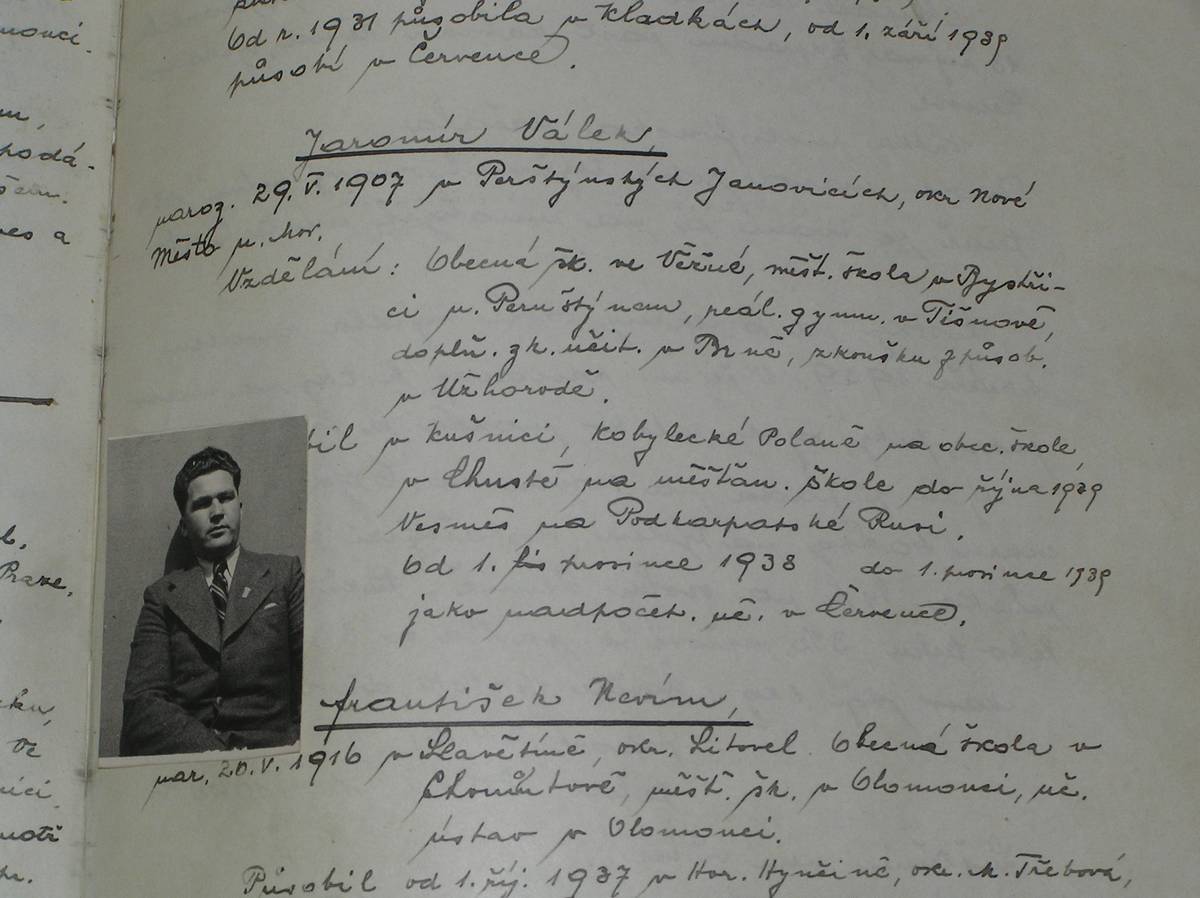 Od r. 1931 působila v Kladkách, od 1. září 1939
působí v Července.
Jaromír Válek,
naroz. 29. V. 1907 v Perštýnských Janovicích, okr. Nové
Město n. Mor.
Vzdělání: Obecná šk. ve Věžné, měšt. škola v Bystři-
ci n. Pernštýnem, reál. gymn. v Tišnově,
doplň. zk. učit. v Brně, zkoušku způsob.
v Užhorodě.
bil v Kušnici, Kobylecké Polaně na obec. škole,
v Chustě na měšťan. škole do října 1939
Vesměs na Podkarpatské Rusi.
Od 1. prosince 1938 do 1. prosince 1939
jako nadpočet. uč. v Července.
František Nevím,
nar. 20. V. 1916 v Slavětíně, okr. Litovel. Obecná škola v
měšt. šk. v Olomouci, uč.
ústav v Olomouci.
Působil od 1. říj. 1937 v Hor. Hynčině, okr. M. Třebová,
omouci.
podá-
es a
Praze,